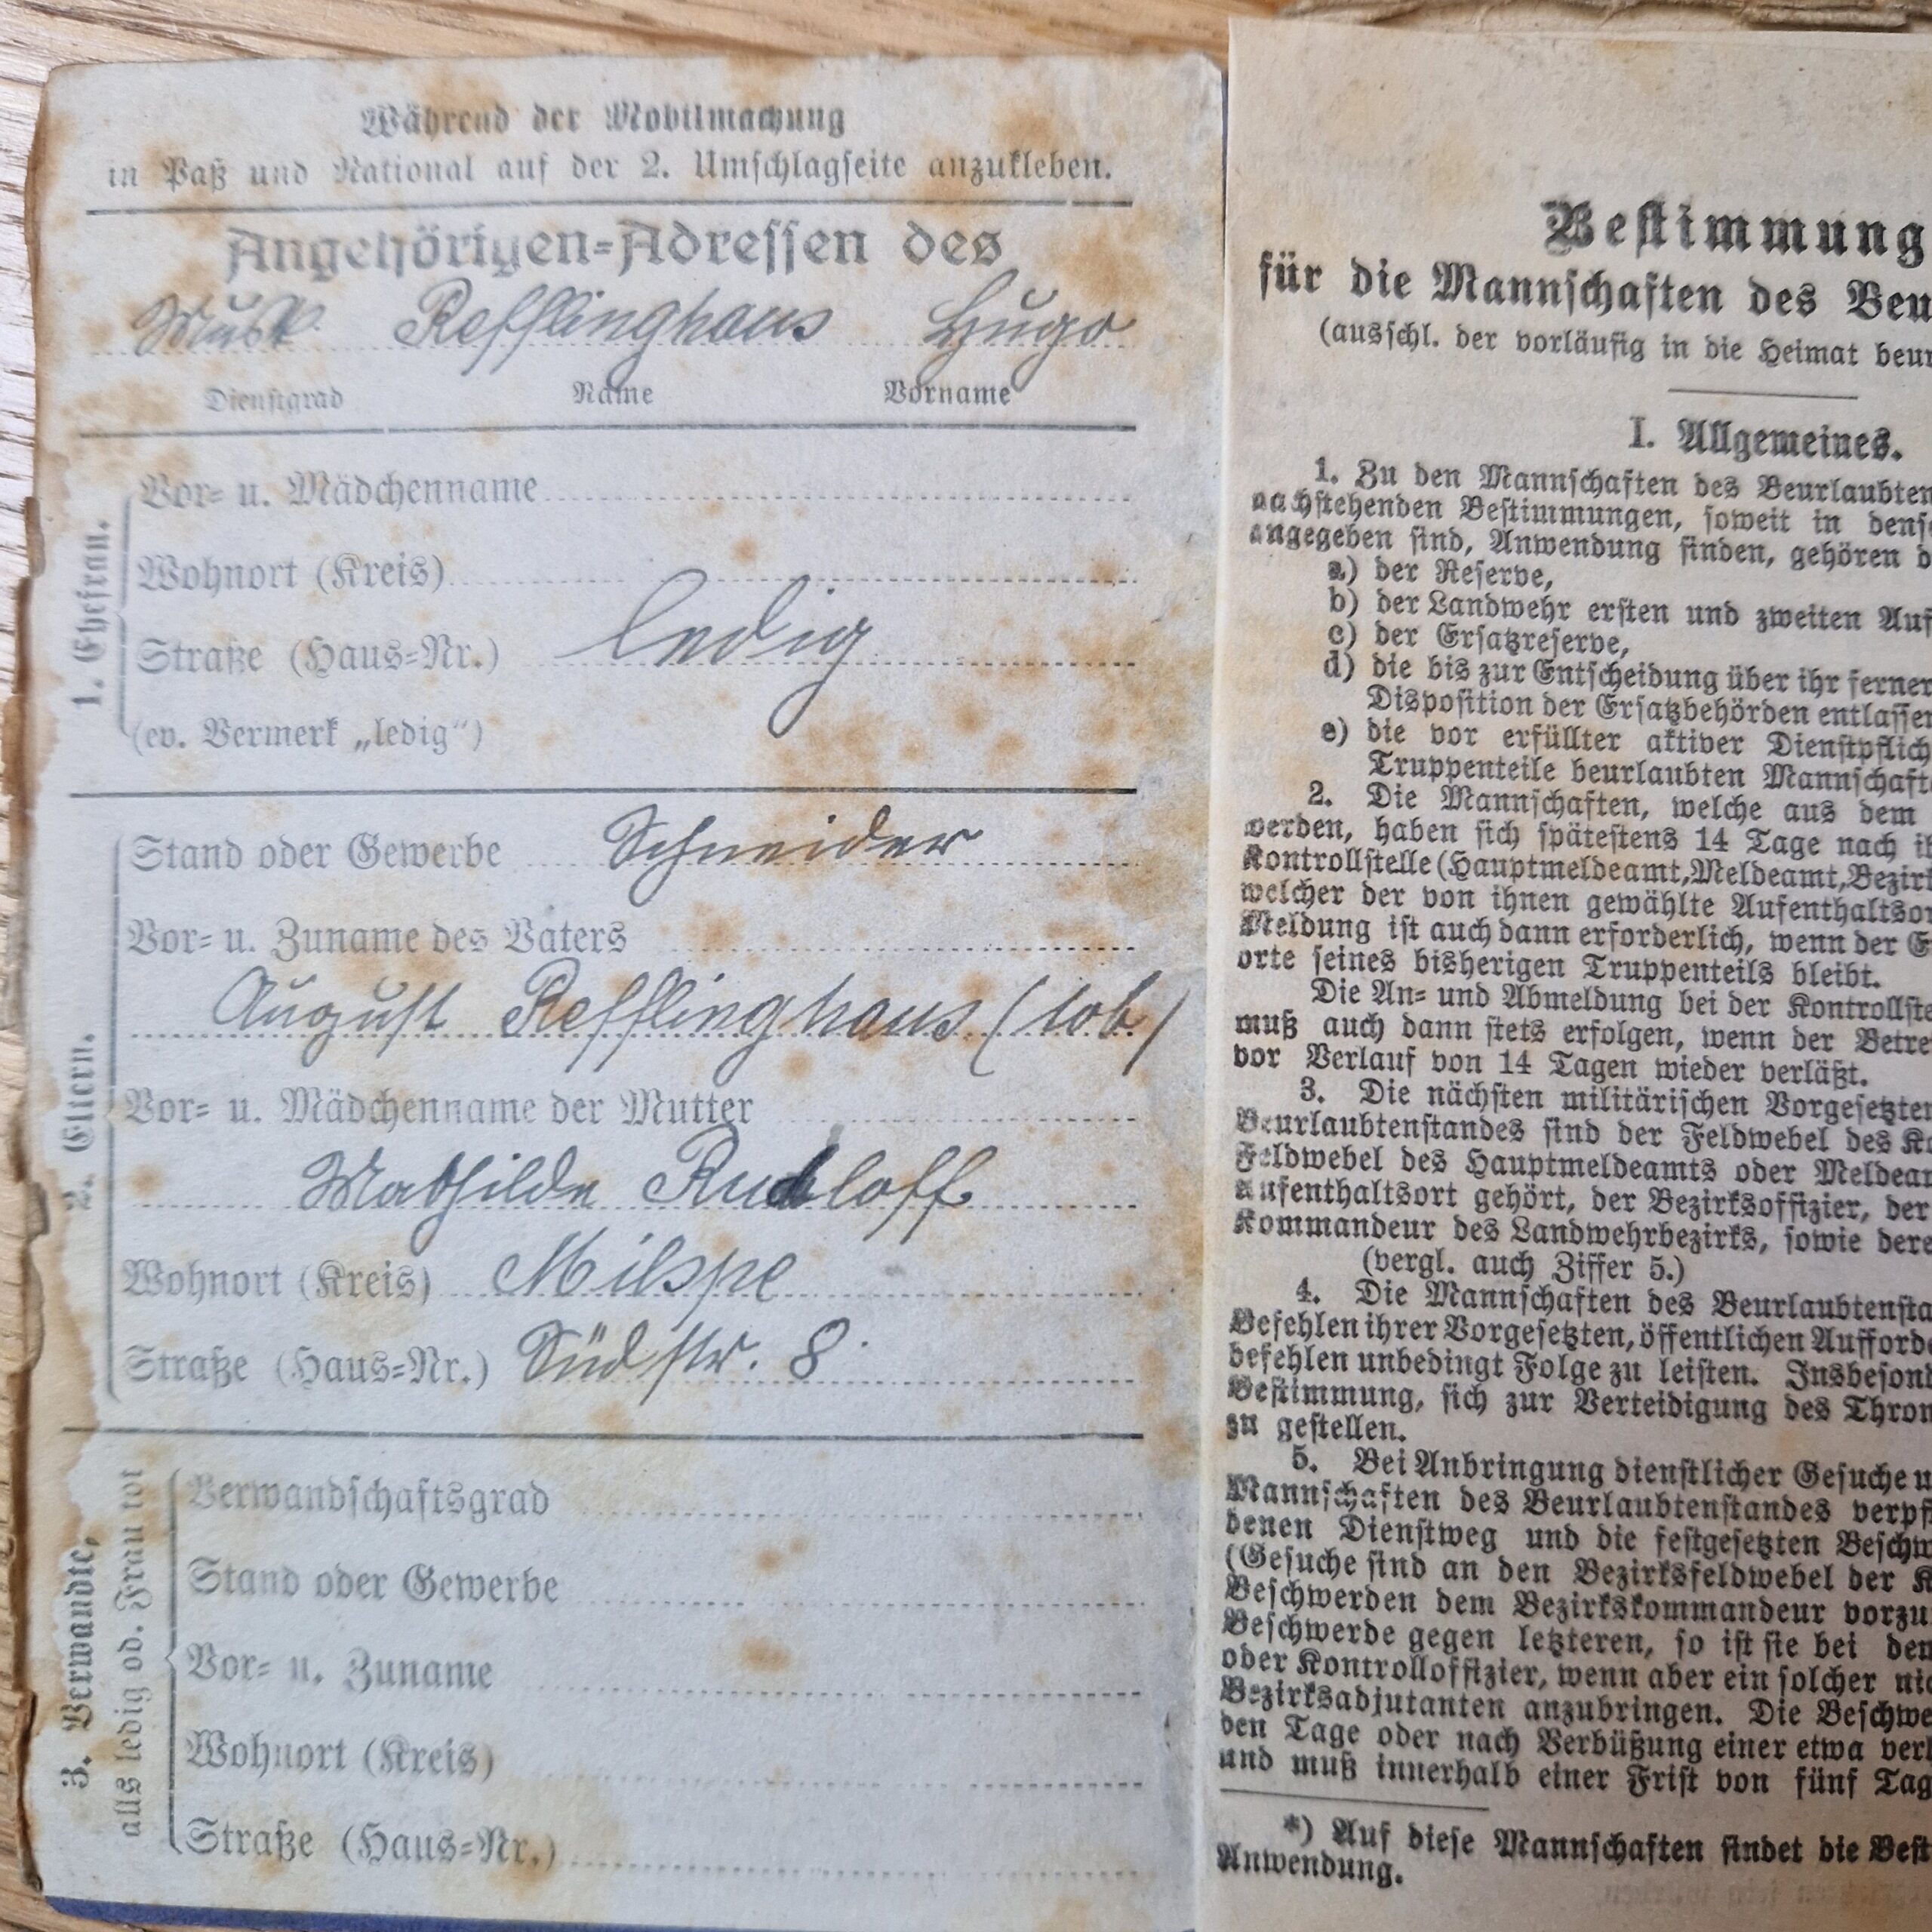 Während der Mobilmachung
in Paß und National auf der 2. Umschlagseite anzukleben.
Angehörigen-Adressen des
Musk. Refflinghaus Hugo
Dienstgrad Name Vorname
1. Ehefrau.
Vor- u. Mädchenname
Wohnort (Kreis)
Straße (Haus-Nr.) ledig
(ev. Vermerk „ledig“)
2. Eltern.
Stand oder Gewerbe Schneider
Vor- u. Zuname des Vaters
August Refflinghaus (tob.)
Vor- u. Mädchenname der Mutter
Mathilde Rudloff
Wohnort (Kreis) Milspe
Straße (Haus-Nr.) Südstr. 8.
3. Verwandte,
alls ledig od. Frau tot
Verwandschaftsgrad
Stand oder Gewerbe
Vor- u. Zuname
Wohnort (Kreis)
Straße (Haus-Nr.)
Bestimmung
für die Mannschaften des Beu
(ausschl. der vorläufig in die Heimat beur
I. Allgemeines.
1. Zu den Mannschaften des Beurlaubten
nachstehenden Bestimmungen, soweit in dens
angegeben sind, Anwendung finden, gehören d
a) der Reserve,
b) der Landwehr ersten und zweiten Auf
c) der Ersatzreserve,
d) die bis zur Entscheidung über ihr ferner
Disposition der Ersatzbehörden entlassen
e) die vor erfüllter aktiver Dienstpflich
Truppenteile beurlaubten Mannschaft
2. Die Mannschaften, welche aus dem
werden, haben sich spätestens 14 Tage nach ih
Kontrollstelle (Hauptmeldeamt, Meldeamt, Bezirk
welcher der von ihnen gewählte Aufenthaltsor
Meldung ist auch dann erforderlich, wenn der E
orte seines bisherigen Truppenteils bleibt.
Die An- und Abmeldung bei der Kontrollste
muß auch dann stets erfolgen, wenn der Betre
vor Verlauf von 14 Tagen wieder verläßt.
3. Die nächsten militärischen Vorgesetzten
Beurlaubtenstandes sind der Feldwebel des Ko
Feldwebel des Hauptmeldeamts oder Meldeam
Aufenthaltsort gehört, der Bezirksoffizier, der
Kommandeur des Landwehrbezirks, sowie dere
(vergl. auch Ziffer 5.)
4. Die Mannschaften des Beurlaubtensta
Befehlen ihrer Vorgesetzten, öffentlichen Aufford
befehlen unbedingt Folge zu leisten. Insbesond
Bestimmung, sich zur Verteidigung des Thron
zu gestellen.
5. Bei Anbringung dienstlicher Gesuche u
Mannschaften des Beurlaubtenstandes verpf
denen Dienstweg und die festgesetzten Beschw
(Gesuche sind an den Bezirksfeldwebel der K
Beschwerden dem Bezirkskommandeur vorzu
Beschwerde gegen letzteren, so ist sie bei dem
oder Kontrolloffizier, wenn aber ein solcher nic
Bezirksadjutanten anzubringen. Die Beschwe
den Tage oder nach Verbüßung einer etwa verh
und muß innerhalb einer Frist von fünf Tag
*) Auf diese Mannschaften findet die Best
Anwendung.